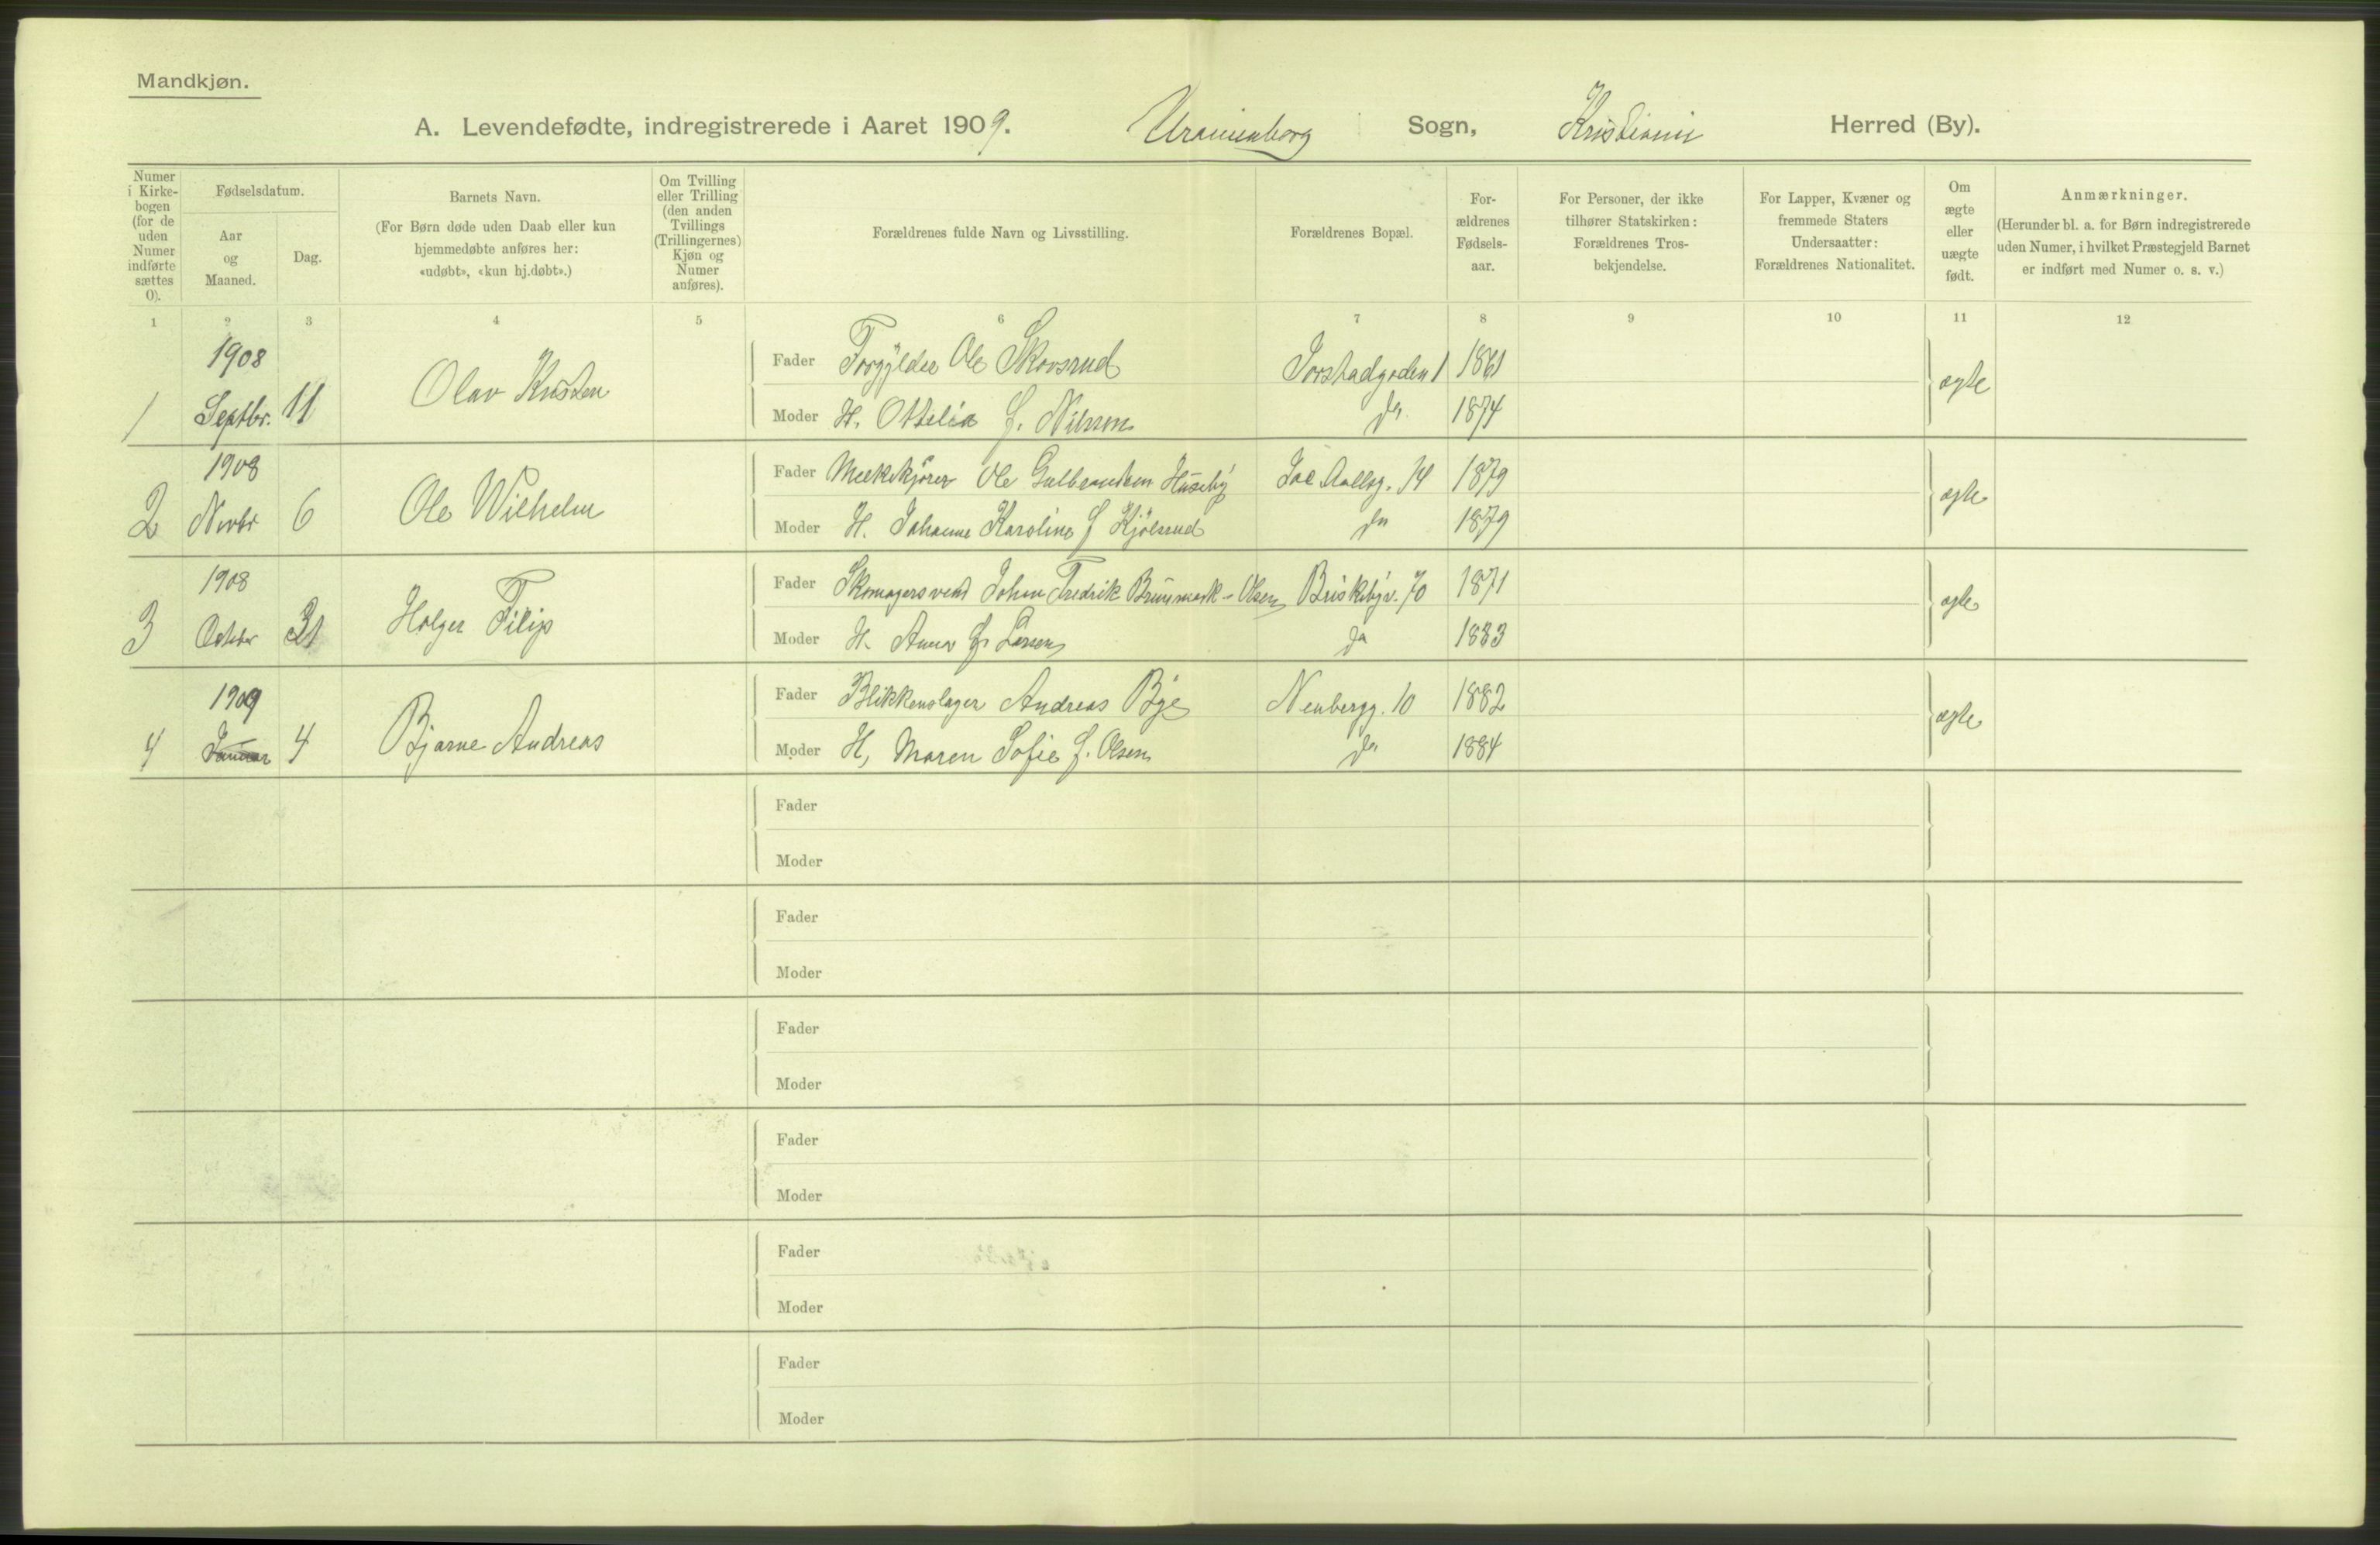 Mandkjøn.
A. Levendefødte, indregistrerede i Aaret 1909. Uranienborg Sogn, Kristiania Herred (By).
Numer i Kirkebogen (for de uden Numer indførte sættes 0).
Fødselsdatum.
Aar og Maaned.
Dag.
Barnets Navn.
(For Børn døde uden Daab eller kun hjemmedøbte anføres her: «udøbt», «kun hj.døbt».)
Om Tvilling eller Trilling (den anden Tvillings (Trillingernes) Kjøn og Numer anføres).
Forældrenes fulde Navn og Livsstilling.
Forældrenes Bopæl.
For-ældrenes Fødsels-aar.
For Personer, der ikke tilhører Statskirken: Forældrenes Tros-bekjendelse.
For Lapper, Kvæner og fremmede Staters Undersaatter: Forældrenes Nationalitet.
Om ægte eller uægte født.
Anmærkninger.
(Herunder bl. a. for Børn indregistrerede uden Numer, i hvilket Præstegjeld Barnet er indført med Numer o. s. v.)
1 2 3 4 5 6 7 8 9 10 11 12
1 1908 Septbr. 11 Olav Kristen
Fader Forgylder Ole Skovsrud 1861 ægte
Moder H. Ottelia f. Nilsson do 1874
2 1908 Novbr 6 Ole Wilhelm
Fader Ole Gulbrandsen Huseby Jac Aallsg. 14 1879 ægte
Moder H. Johanne Karoline f Kjölsrud do 1879
3 1908 Octbr 31 Holger Filip
Fader Skomagersvend Johan Fredrik Olsen Briskebyv. 70 1871 ægte
Moder H. Anna f. Larsen do 1883
4 1909 Januar 4 Bjarne Andreas
Fader Blikkenslager Andreas Bye Neubergg. 10 1882 ægte
Moder H, Maren Sofie f. Olsen do 1884
Fader
Moder
Fader
Moder
Fader
Moder
Fader
Moder
Fader
Moder
Fader
Moder